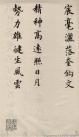 宸毫灑落奎鉤文
精神高遠照日月
努力雄健生風雲